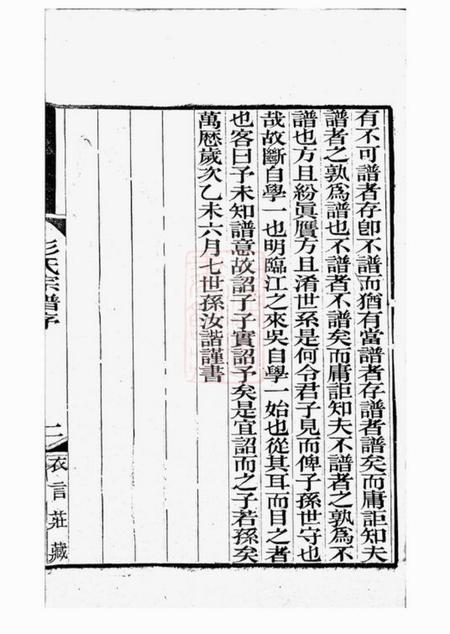 有不可譜者存卽不譜而猶有當譜者存譜者譜矣而庸詎知夫
譜者之孰爲譜也不譜者不譜矣而庸詎知夫不譜者之孰爲不
譜也方且紛眞贗方且淆世系是何令君子見而俾子孫世守也
哉故斷自學一也明臨江之來吳自學一始也從其耳而目之者
也客曰予未知譜意故詔子子實詔予矣是宜詔而之子若孫矣
萬歷歲次乙未六月七世孫汝諧謹書
彭氏宗譜序
二
衣言莊藏